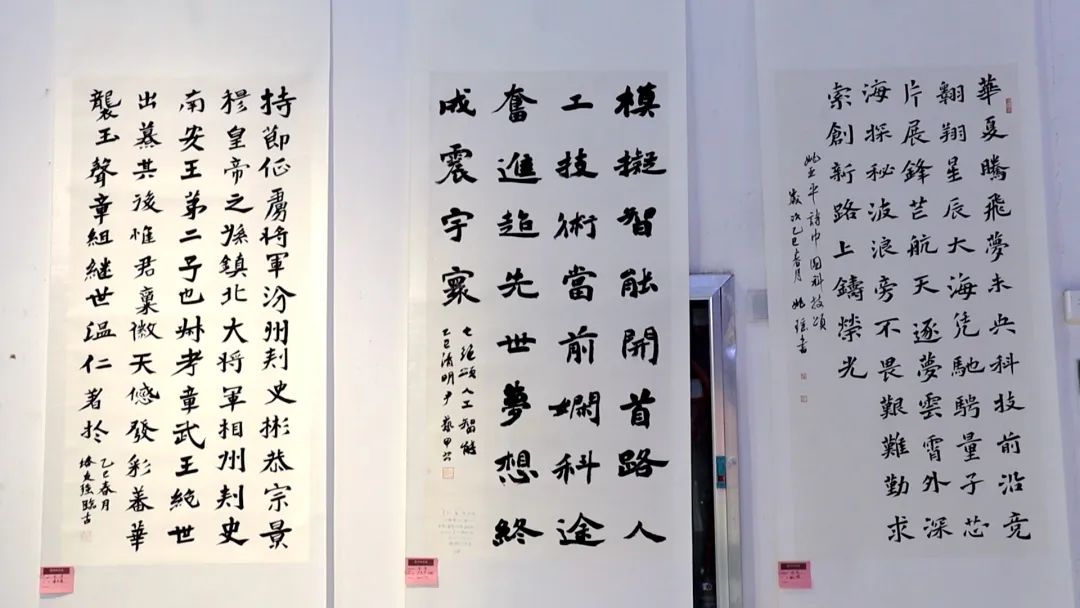 持節征虜將軍汾州刾史彬恭宗景
穆皇帝之孫鎮北大將軍相州刾史
南安王弟二子也叔考章武王絶世
出纂其後惟君稟徽天感發彩蕃華
襲玉聲章組継世溫仁著於
乙巳春月
文強臨古
模擬智能開首路人
工技術當前嫻科途
奮進超先世夢想終
成震宇寰
七絕頌人工智能
乙巳清明尹
華夏騰飛夢未央科技前沿竞
翱翔星辰大海凭馳騁量子芯
片展鋒芒航天逐夢雲霄外深
海探秘波浪旁不畏艱難勤求
索創新路上鑄榮光
姚亚平詩中國科技頌
歲次乙巳春月姚瑶書